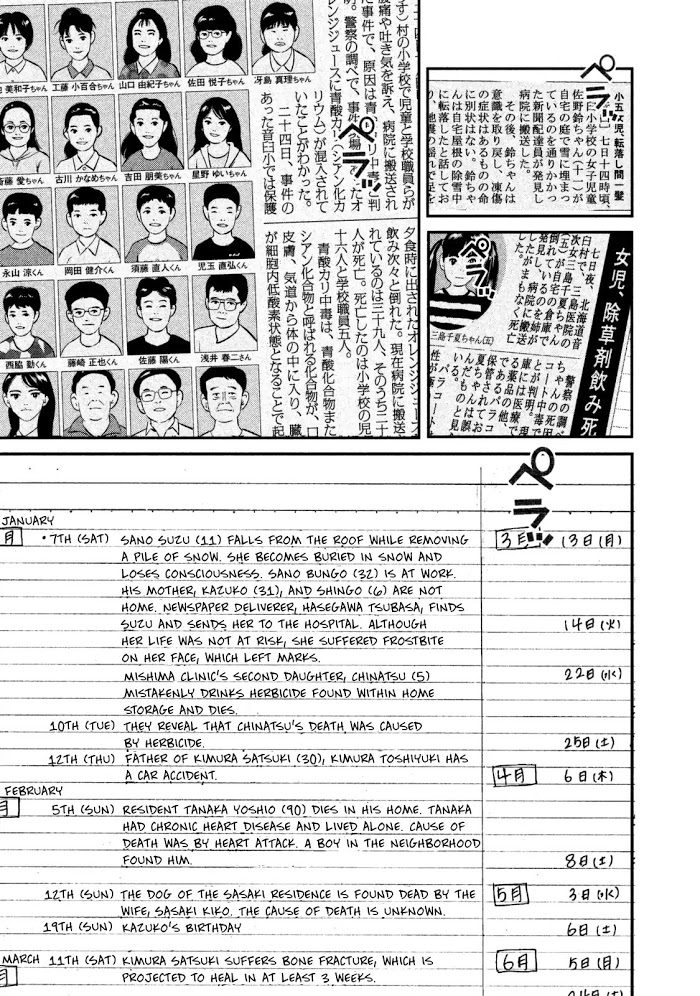 美和子ちゃん
工藤 小百合ちゃん
山口 由紀子ちゃん
佐田 悦子ちゃん
冴島 真理ちゃん
斎藤 愛ちゃん
古川 かなめちゃん
吉田 朋美ちゃん
星野 ゆいちゃん
永山 涼くん
岡田 健介くん
須藤 直人くん
児玉 直弘くん
西脇 勤くん
藤崎 正也くん
佐藤 陽くん
浅井 春二さん
す）村の小学校で児童と学校職員らが
腹痛や吐き気を訴え、病院に搬送され
た事件で、原因は青
中毒と判
警察の調べで、事件
ンジジュースに青酸カリ（シアン化カ
リウム）が混入されて
いたことがわかった。
二十四日、事件の
あった音臼小では保護
夕食時に出されたオレンジジュースを
飲み次々と倒れた。現在病院に搬送さ
れているのは三十九人、そのうち二十
人が死亡。死亡したのは小学校の児
十六人と学校職員五人。
青酸カリ中毒は、青酸化合物また
シアン化合物と呼ばれる化合物が、口
皮膚、気道から体の中に入り、臓
が細胞内低酸素状態となることで起
ペラッ
小五女児、転落し間一髪
七日十四時頃、
臼小学校の女子児童
佐野鈴ちゃん（十一）が
自宅の庭で雪に埋まっ
ているのを通りかかっ
た新聞配達員が発見し
病院に搬送した。
その後、鈴ちゃんは
意識を取り戻し、凍傷
の症状はあるものの命
に別状はない。鈴ちゃ
んは自宅屋根の除雪中
に転落したと話してお
ペラッ
女児、除草剤飲み死
七日夜、北海道音
臼村で、三島医院の
次女三島千夏ちゃん
（五）が自宅の倉庫で
倒れているのを姉が
発見し、病院に搬送
したがまもなく死亡
した。
三島千夏ちゃん（五）
警察の調べ
ちゃんの死因
コート中毒で
とが判明。現
庫には医療で
る薬品の他、
であるパラコ
保管されてお
夏ちゃんは誤
んだものと見
いる。
パラコート
ペラッ
ペラッ
JANUARY
月
・7TH (SAT) SANO SUZU (11) FALLS FROM THE ROOF WHILE REMOVING
A PILE OF SNOW. SHE BECOMES BURIED IN SNOW AND
LOSES CONSCIOUSNESS. SANO BUNGO (32) IS AT WORK.
HIS MOTHER, KAZUKO (31), AND SHINGO (6) ARE NOT
HOME. NEWSPAPER DELIVERER, HASEGAWA TSUBASA, FINDS
SUZU AND SENDS HER TO THE HOSPITAL. ALTHOUGH
HER LIFE WAS NOT AT RISK, SHE SUFFERED FROSTBITE
ON HER FACE, WHICH LEFT MARKS.
MISHIMA CLINIC'S SECOND DAUGHTER, CHINATSU (5)
MISTAKENLY DRINKS HERBICIDE FOUND WITHIN HOME
STORAGE AND DIES.
10TH (TUE) THEY REVEAL THAT CHINATSU'S DEATH WAS CAUSED
BY HERBICIDE.
12TH (THU) FATHER OF KIMURA SATSUKI (30), KIMURA TOSHIYUKI HAS
A CAR ACCIDENT.
FEBRUARY
月
5TH (SUN) RESIDENT TANAKA YOSHIO (90) DIES IN HIS HOME. TANAKA
HAD CHRONIC HEART DISEASE AND LIVED ALONE. CAUSE OF
DEATH WAS BY HEART ATTACK. A BOY IN THE NEIGHBORHOOD
FOUND HIM.
12TH (SUN) THE DOG OF THE SASAKI RESIDENCE IS FOUND DEAD BY THE
WIFE, SASAKI KIKO. THE CAUSE OF DEATH IS UNKNOWN.
19TH (SUN) KAZUKO'S BIRTHDAY
MARCH 11TH (SAT) KIMURA SATSUKI SUFFERS BONE FRACTURE, WHICH IS
PROJECTED TO HEAL IN AT LEAST 3 WEEKS.
月
3月 13日(月)
14日(火)
22日(水)
25日(土)
4月 6日(木)
8日(土)
5月 3日(水)
6日(土)
6月 5日(月)